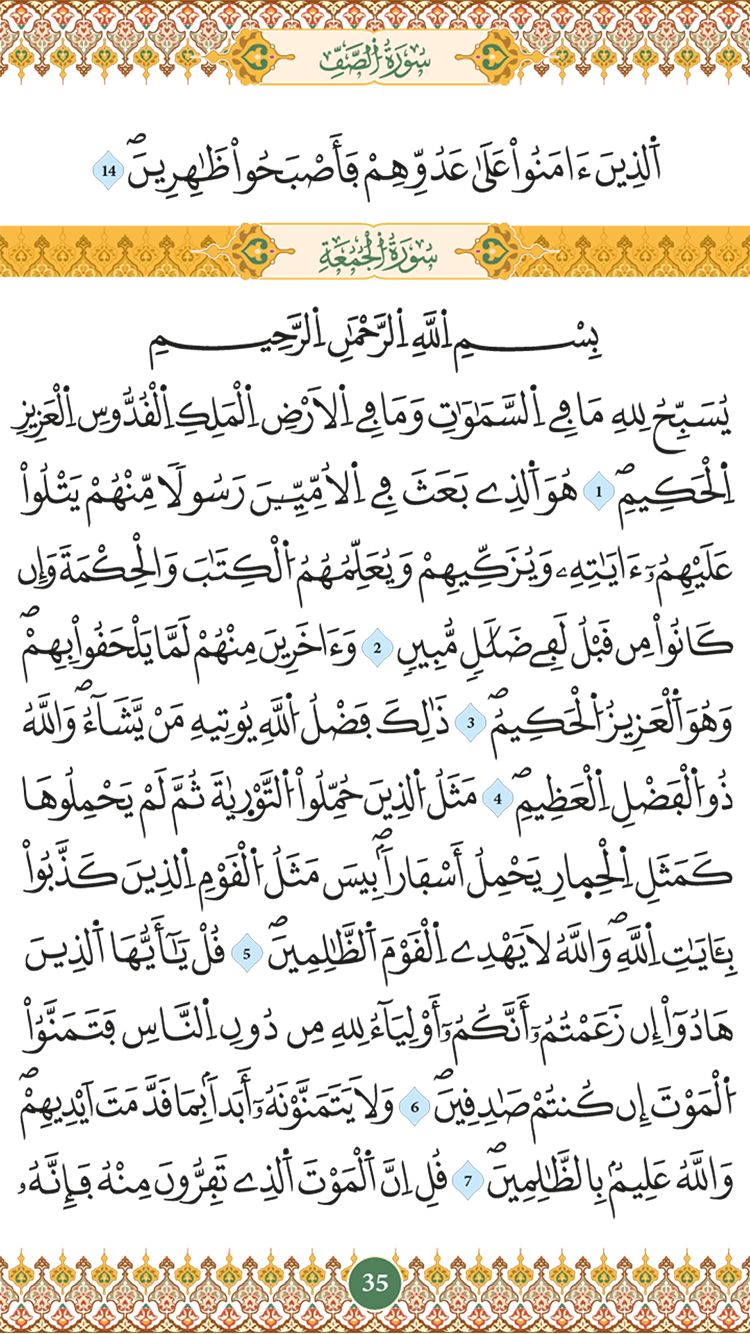 سُورَةُ اُ۬لصَّفِّ
اَ۬لذِينَ ءَامَنُواْ عَلَىٰ عَدُوِّهِمْ فَأَصْبَحُواْ ظَٰهِرِينَۖ 14
سُورَةُ اُ۬لْجُمُعَةِ
بِسْمِ اِ۬للَّهِ اِ۬لرَّحْمَٰنِ اِ۬لرَّحِيمِ
يُسَبِّحُ لِلهِ مَا فِے اِ۬لسَّمَٰوَٰتِ وَمَا فِے اِ۬لَارْضِ اِ۬لْمَلِكِ اِ۬لْقُدُّوسِ اِ۬لْعَزِيزِ
اِ۬لْحَكِيمِۖ 1 هُوَ اَ۬لذِے بَعَثَ فِے اِ۬لُامِّيِّـۧنَ رَسُولاٗ مِّنْهُمْ يَتْلُواْ
عَلَيْهِمُۥٓ ءَايَٰتِهِۦ وَيُزَكِّيهِمْ وَيُعَلِّمُهُمُ اُ۬لْكِتَٰبَ وَالْحِكْمَةَ وَإِن
كَانُواْ مِن قَبْلُ لَفِے ضَلَٰلٖ مُّبِينٖ 2 وَءَاخَرِينَ مِنْهُمْ لَمَّا يَلْحَقُواْ بِهِمْۖ
وَهُوَ اَ۬لْعَزِيزُ اُ۬لْحَكِيمُۖ 3 ذَٰلِكَ فَضْلُ اُ۬للَّهِ يُوتِيهِ مَنْ يَّشَآءُۖ وَاللَّهُ
ذُو اُ۬لْفَضْلِ اِ۬لْعَظِيمِۖ 4 مَثَلُ اُ۬لذِينَ حُمِّلُواْ اُ۬لتَّوْر۪يٰةَ ثُمَّ لَمْ يَحْمِلُوهَا
كَمَثَلِ اِ۬لْحِم۪ارِ يَحْمِلُ أَسْفَاراَۢۖ بِيسَ مَثَلُ اُ۬لْقَوْمِ اِ۬لذِينَ كَذَّبُواْ
بِـَٔايَٰتِ اِ۬للَّهِۖ وَاللَّهُ لَا يَهْدِے اِ۬لْقَوْمَ اَ۬لظَّٰلِمِينَۖ 5 قُلْ يَٰٓأَيُّهَا اَ۬لذِينَ
هَادُوٓاْ إِن زَعَمْتُمُۥٓ أَنَّكُمُۥٓ أَوْلِيَآءُ لِلهِ مِن دُونِ اِ۬لنَّاسِ فَتَمَنَّوُاْ
اُ۬لْمَوْتَ إِن كُنتُمْ صَٰدِقِينَۖ 6 وَلَا يَتَمَنَّوْنَهُۥٓ أَبَداَۢ بِمَا قَدَّمَتَ اَيْدِيهِمْۖ
وَاللَّهُ عَلِيمُۢ بِالظَّٰلِمِينَۖ 7 قُلِ اِنَّ اَ۬لْمَوْتَ اَ۬لذِے تَفِرُّونَ مِنْهُ فَإِنَّهُۥ
35